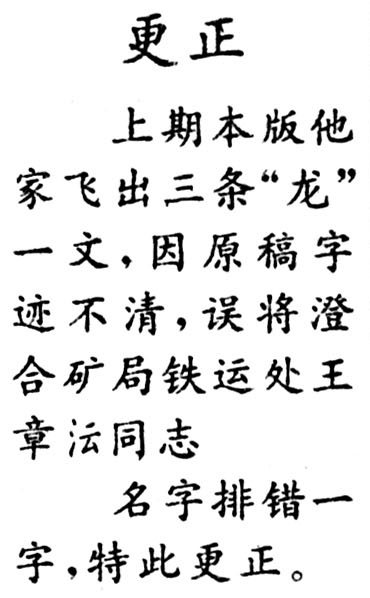 更正
上期本版他
家飞出三条“龙”
一文,因原稿字
迹不清,误将澄
合矿局铁运处王
章沄同志
名字排错一
字,特此更正。